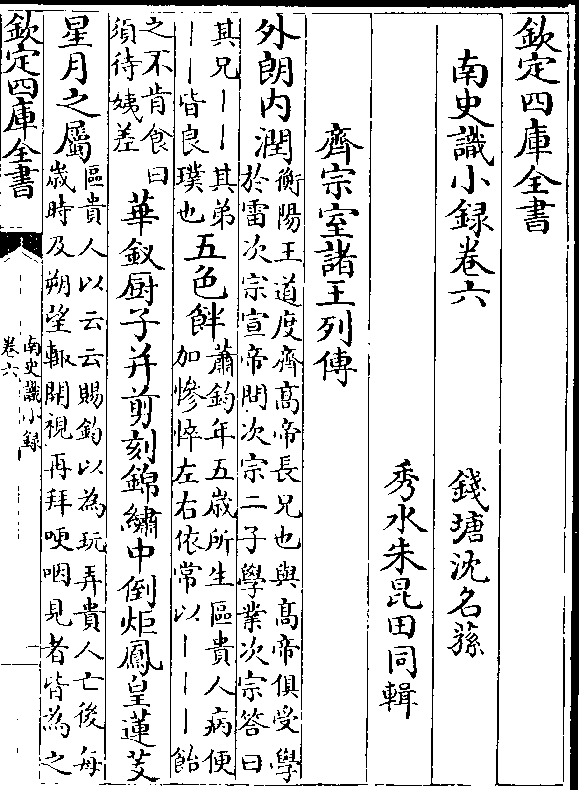 欽定四庫全書
南史識小録卷六
錢塘沈名蓀
秀水朱昆田同輯
齊宗室諸王列傳
外朗内潤衡陽王道度齊髙帝長兄也與髙帝俱受學
於雷次宗宣帝問次宗二子學業次宗答曰
其兄丨丨其弟
丨丨皆良璞也五色餅蕭鈞年五歲所生區貴人病便
加慘悴左右依常以丨丨丨飴
之不肯食曰
須待姨差華釵厨子并剪刻錦繡中倒炬鳳皇蓮芰
星月之屬區貴人以云云賜鈞以為玩弄貴人亡後每
歲時及朔望輒開視再拜哽咽見者皆為之
欽定四庫全書
南史識小録
卷六
一